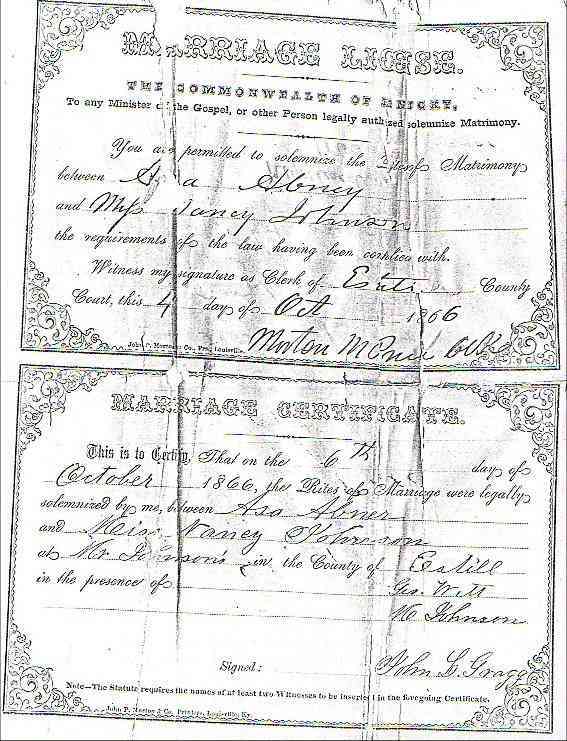 MARRIAGE LICESE.
THE COMMONWEALTH OF
To any Minister of the Gospel, or other Person legally authized solemnize Matrimony.
You are permitted to solemnize the Rites of Matrimony
between Asa Abney
and Miss Nancy Johnson
the requirements of the law having been complied with.
Witness my signature as Clerk of Estill County
Court, this 4 day of Oct 1866
Morton
John P. Morton & Co., Prs., Louisville.
MARRIAGE CERTIFICATE.
This is to Certify, That on the 6th day of
October 1866, the Rites of Marriage were legally
solemnized by me, between Asa Abner
and Miss Nancy Johnson
at Mr Johnson's in the County of Estill
in the presence of Geo. Witt
Johnson
Signed: John G. Gragg
Note—The Statute requires the names of at least two Witnesses to be inserted in the foregoing Certificate.
John P. Morton & Co. Printers, Louisville, Ky.